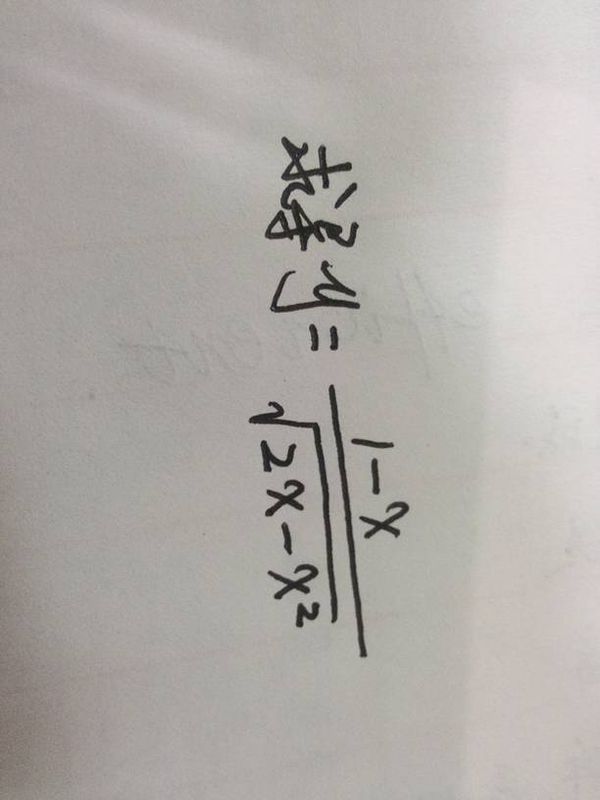 求导 y = \frac{1-x}{\sqrt{2x-x^2}}